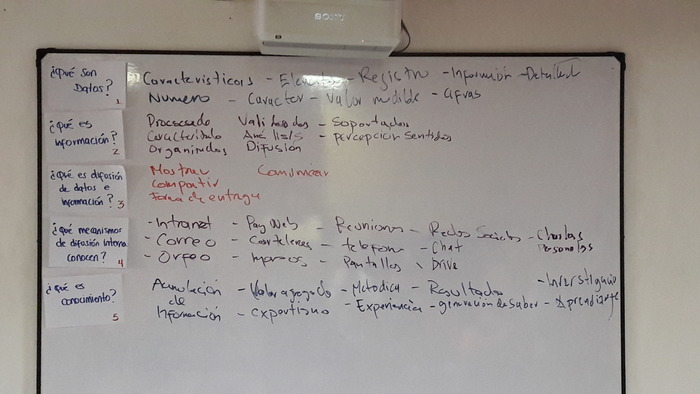 SONY
¿Qué son
Datos?
1
Caracteristicas - - Registro - Información - Detalle
Numero - Caracter - Valor medible - Cifras
¿Qué es
información?
2
Procesado Validados - Soportados
Análisis - Percepción Sentidos
Organizados Difusión
¿Qué es difusión
de datos e
información?
3
Mostrar Comunicar
Compartir
Forma de entrega
¿Qué mecanismos
de difusión interna
conocen?
4
- Intranet - Pag Web - Reuniones - Redes Sociales - Charlas
- Correo - Carteleras - telefono - Chat Personales
- Orfeo - Impresos - Pantallas \ Drive
¿Qué es
conocimiento?
5
Acumulación - Valor agregado - Metodica - Resultados - Investigación
de
Información - expertismo - Experiencia - generación de Saber - Aprendizaje